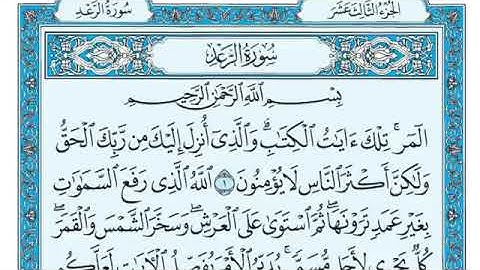 الجزء الثالث عشر
سورة الرعد
سُورَةُ الرَّعْدِ
بِسْمِ اللَّهِ الرَّحْمَٰنِ الرَّحِيمِ
الٓمٓرۚ تِلْكَ ءَايَٰتُ الْكِتَٰبِۗ وَالَّذِىٓ أُنزِلَ إِلَيْكَ مِن رَّبِّكَ الْحَقُّ
وَلَٰكِنَّ أَكْثَرَ النَّاسِ لَا يُؤْمِنُونَ ١ اللَّهُ الَّذِى رَفَعَ السَّمَٰوَٰتِ
بِغَيْرِ عَمَدٍ تَرَوْنَهَاۖ ثُمَّ اسْتَوَىٰ عَلَى الْعَرْشِۖ وَسَخَّرَ الشَّمْسَ وَالْقَمَرَۖ
كُلٌّ يَجْرِى لِأَجَلٍ مُّسَمًّىۚ يُدَبِّرُ الْأَمْرَ يُفَصِّلُ الْءَايَٰتِ لَعَلَّكُم